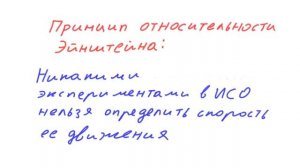 Принцип относительности
Эйнштейна:
Никакими
экспериментами в ИСО
нельзя определить скорость
ее движения